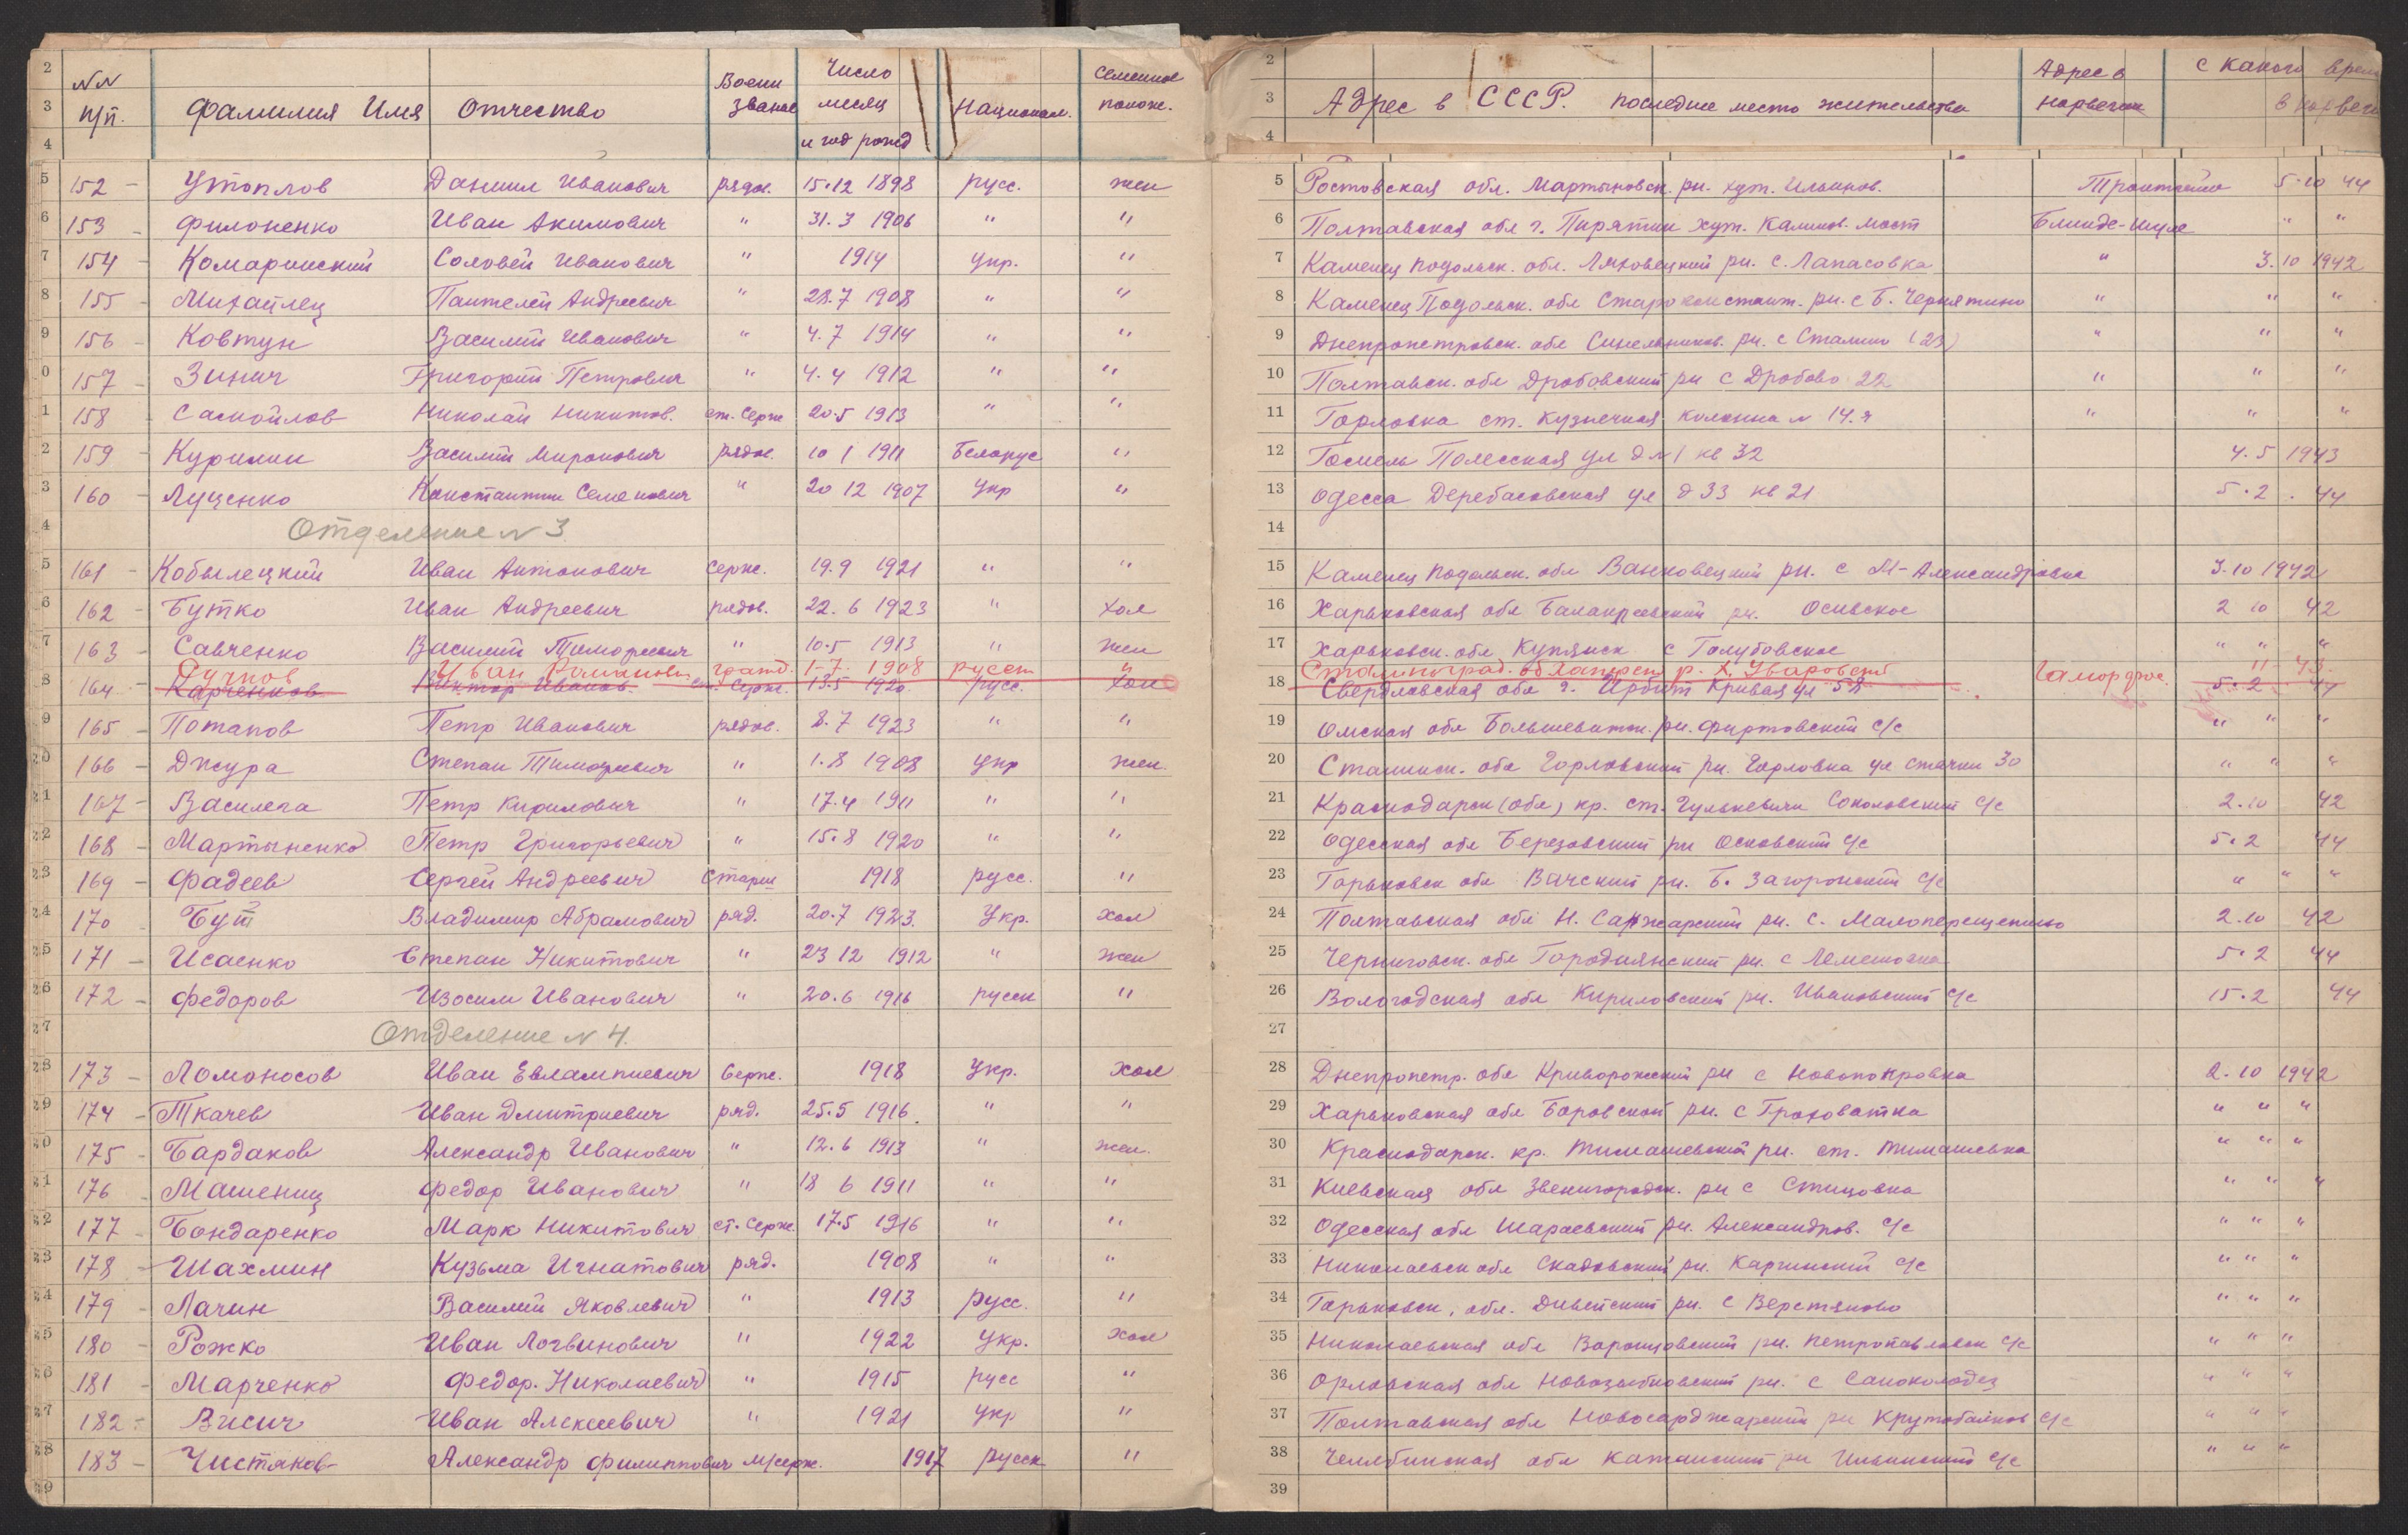 NN п/п. Фамилия Имя Отчество Воени званье Число месяц и год рожд Национал. Семейное полож. Адрес в СССР. последнее место жительства Адрес в Норвегии с какого врем в Норвеги
152 – Утоплов Даниил Иванович рядов. 15.12 1898 русс. жен Ростовская обл. Мартыновск. рн. хут. Ильинов. 5.10 44
153 – Филоненко Иван Акимович " 31.3 1906 " " Полтавская обл г. Пирятин хут. Калинов. мост " "
154 – Комаринский Соловей Иванович " 1914 укр. " Каменец Подольск. обл. Ляховецкий рн. с. Лапасовка " 3.10 1942
155 – Михайлец Пантелей Андреевич " 28.7 1908 " " Каменец Подольск. обл Староконстант. рн. с Б. Чернятино " " "
156 – Ковтун Василий Иванович " 4.7 1914 " " Днепропетровск. обл Синельников. рн. с Сталино (23) " " "
157 – Зинич Григорий Петрович " 4.4 1912 " " Полтавск. обл Дробовский рн с Дробово 22 " " "
158 – Самойлов Николай Никитов. ст. серж 20.5 1913 " " Горловка ст. Кузнечная колонна N 14.я " " "
159 – Курилин Василий Миронович рядов. 10 1 1911 Белорус " Гомель Полесская ул д N 1 кв 32 4.5 1943
160 – Луценко Константин Семенович " 20 12 1907 Укр " Одесса Дерибасовская ул д 33 кв 21 5.2. 44
Отделение N 3
161 – Кобылецкий Иван Антонович серж. 19.9 1921 " " Каменец Подольск. обл Ваньковецкий рн. с М-Александровка 3.10 1942
162 – Бутко Иван Андреевич рядов. 22.6 1923 " хол Харьковская обл Балаклеевский рн. 2 10 42
163 – Савченко Василий Тимофеевич " 10.5 1913 " жен Харьковск. обл Купянск с Голубовское " " "
Ручнов Иван Романови гражд. 1-7. 1908 русск " Сталинград. об Хаперск р. х. Уваровский 11-43.
164 – Карченков Виктор Иванов. ст. серж. 13.5 1920 русс. хол Свердловская обл г. Ирбит Кривая ул 58 5.2 44
165 – Потапов Петр Иванович рядов. 8.7 1923 " " Омская обл Большевитск. рн. с/с " " "
166 – Джура Степан Тимофеевич " 1.8 1908 укр жен. Сталинск. обл Горловский рн. Горловка ул Стачки 30 " " "
167 – Василега Петр Кирилович " 17.4 1911 " " Краснодарск (обл) кр. ст. Гулькевичи Соколовский с/с 2.10 42
168 – Мартыненко Петр Григорьевич " 15.8 1920 " " Одесская обл Березовский рн Осковский с/с 5.2 44
169 – Фадеев Сергей Андреевич Старш 1918 русс. " Горьковск обл Вачский рн. Б. Загоронский с/с " " "
170 – Бут Владимир Абрамович ряд. 20.7 1923. Укр. хол Полтавская обл Н. Санжарский рн. с. Малоперещепино 2.10 42
171 – Исаенко Степан Никитович " 23 12 1912 " жен Черниговск. обл Городнянский рн. с Лемешовка 5.2 44
172 – Федоров Изосим Иванович " 20.6 1916 русск " Вологодская обл Кириловский рн. Ивановский с/с 15.2 44
Отделение N 4.
173 – Ломоносов Иван Евлампиевич Серж. 1918 Укр. Хол Днепропетр. обл Криворожский рн с Новопокровка 2.10 1942
174 – Ткачев Иван Дмитриевич ряд. 25.5 1916. " " Харьковская обл Боровской рн. с Гроховатка " " "
175 – Бардаков Александр Иванович " 12.6 1913 " жен. Краснодарск. кр. Тимашевский рн. ст. Тимашевка " " "
176 – Машениц Федор Иванович " 18 6 1911 " " Киевская обл Звенигородск. рн с Стицовка " " "
177 – Бондаренко Марк Никитович ст. серж. 17.5 1916 " " Одесская обл Шараевский рн. Александров. с/с " " "
178 – Шахмин Кузьма Игнатович ряд. 1908 " " Николаевск обл Скадовский рн. Каргинский с/с " " "
179 – Лачин Василий Яковлевич " 1913 Русс. " Горьковск. обл. Дивейский рн. с Верстяково " " "
180 – Рожко Иван Логвинович " 1922 Укр. хол Николаевская обл Воронцовский рн. Петропавловск с/с " " "
181 – Марченко Федор. Николаевич " 1915 русс " Орловская обл Новозыбковский рн. с Саноколодез " " "
182 – Висич Иван Алексеевич " 1921 укр " Полтавская обл Новосарджарский рн Крутобалков с/с " " "
183 – Чистяков Александр Филиппович м/серж. 1917 русск " Челябинская обл Катайский рн Ильинский с/с " " "